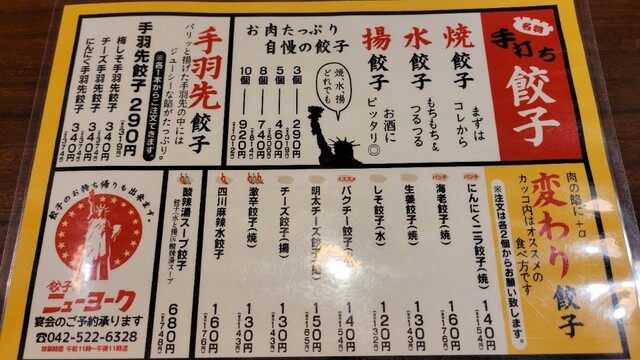 名物
手打ち
餃子
焼餃子
まずは
コレから
水餃子
もちもち&
つるつる
揚餃子
お酒に
ピッタリ◎
お肉たっぷり
自慢の餃子
焼、水、揚
どれでも
3個 290円
5個 460円
8個 740円
10個 920円
手羽先餃子
パリッと揚げた手羽先の中には
ジューシーな餡がたっぷり。
※各1本からご注文できます。
手羽先餃子 290円
梅しそ手羽先餃子 340円
チーズ手羽先餃子 340円
にんにく手羽先餃子 340円
肉の餡に+α
変わり餃子
カッコ内はオススメの
食べ方です
※注文は各2個からお願い致します。
パンチ
にんにくニラ餃子(焼) 140円
パンチ
海老餃子(焼) 160円
生姜餃子(焼) 130円
しそ餃子(水) 120円
オススメ
パクチー餃子 140円
明太チーズ餃子(揚) 150円
チーズ餃子(揚) 130円
激辛餃子(焼) 130円
四川麻辣水餃子 160円
酸辣湯スープ餃子 680円
餃子のお持ち帰りも出来ます。
餃子
ニューヨーク
宴会のご予約承ります
☎042-522-6328
営業時間 午前11時〜午後11時迄